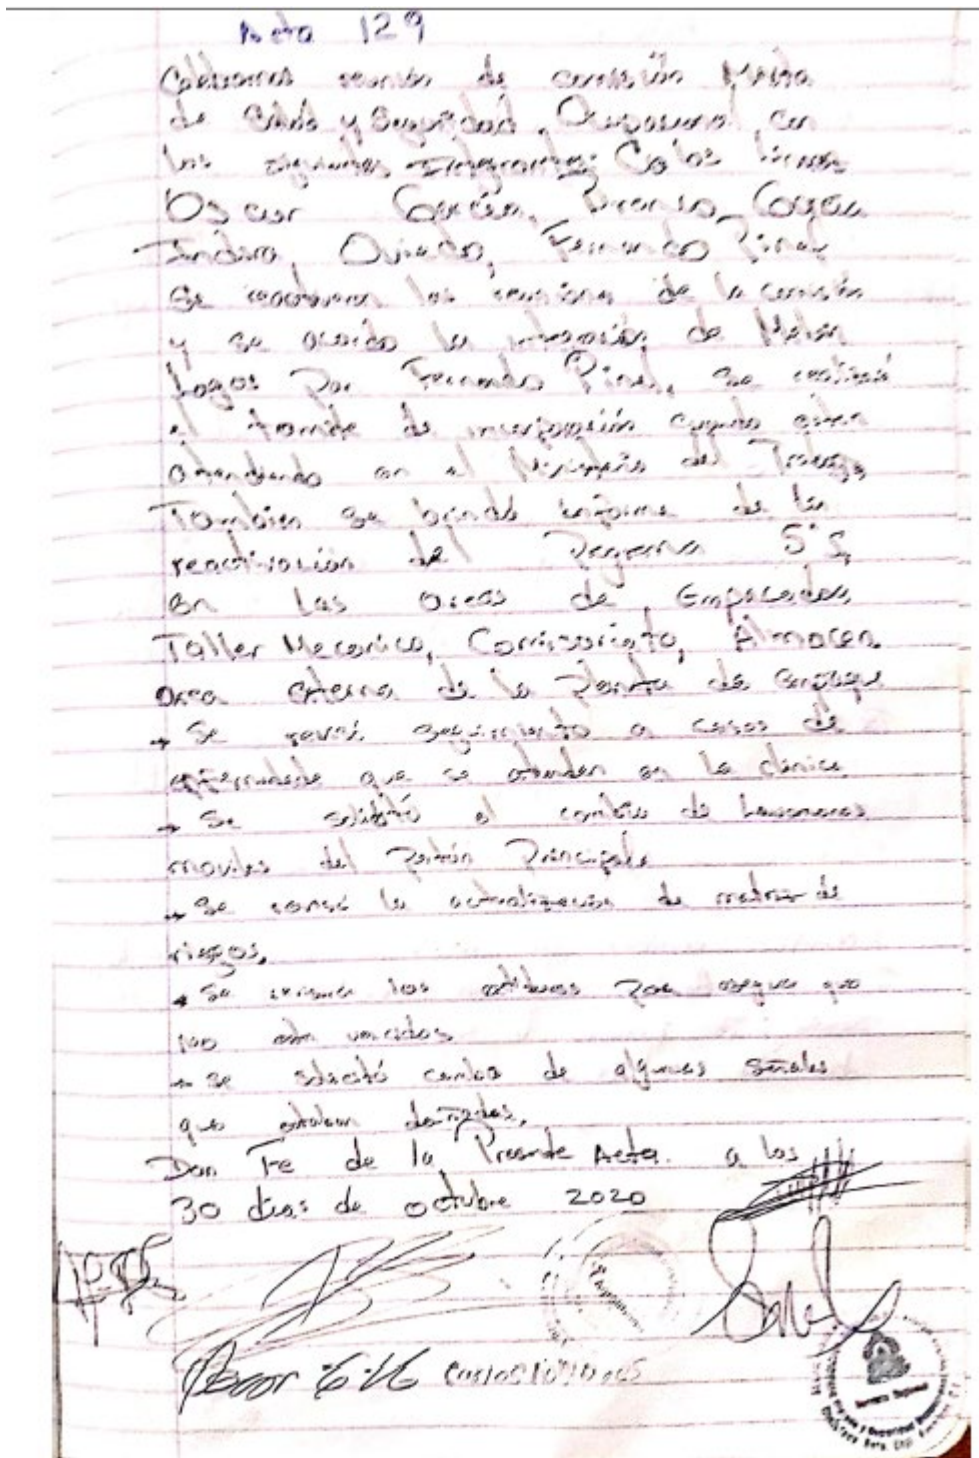 Acta 129
Celebramos reunión de comisión Mixta
de Salud y Seguridad Ocupacional, con
los siguientes Integrantes: Carlos
Oscar García,
Indira, Oviedo, Fernando Pinel
Se reactivaron las reuniones de la comisión
y se acordo la integración de
Lagos por Fernando Pinel, se realizará
el tramite de incorporación cuando esten
atendiendo en el Ministerio del Trabajo
Tambien se brindó informe de la
reactivación del Programa 5'S,
en las areas de, Empacadora,
Taller Mecanico, Comisariato, Almacen.
area externa de la Planta de Empaque
→ Se revisó seguimiento a casos de
que se atienden en la clinica
→ Se solicitó el cambio de lavamanos
moviles del Portón Principal
→ Se revisó la actualización de matriz de
riesgos.
→ Se los para que
no esten vencidos
→ se solicitó cambio de algunas señales
que estaban dañadas.
Dan Fe de la Presente Acta. a los
30 dias de octubre 2020